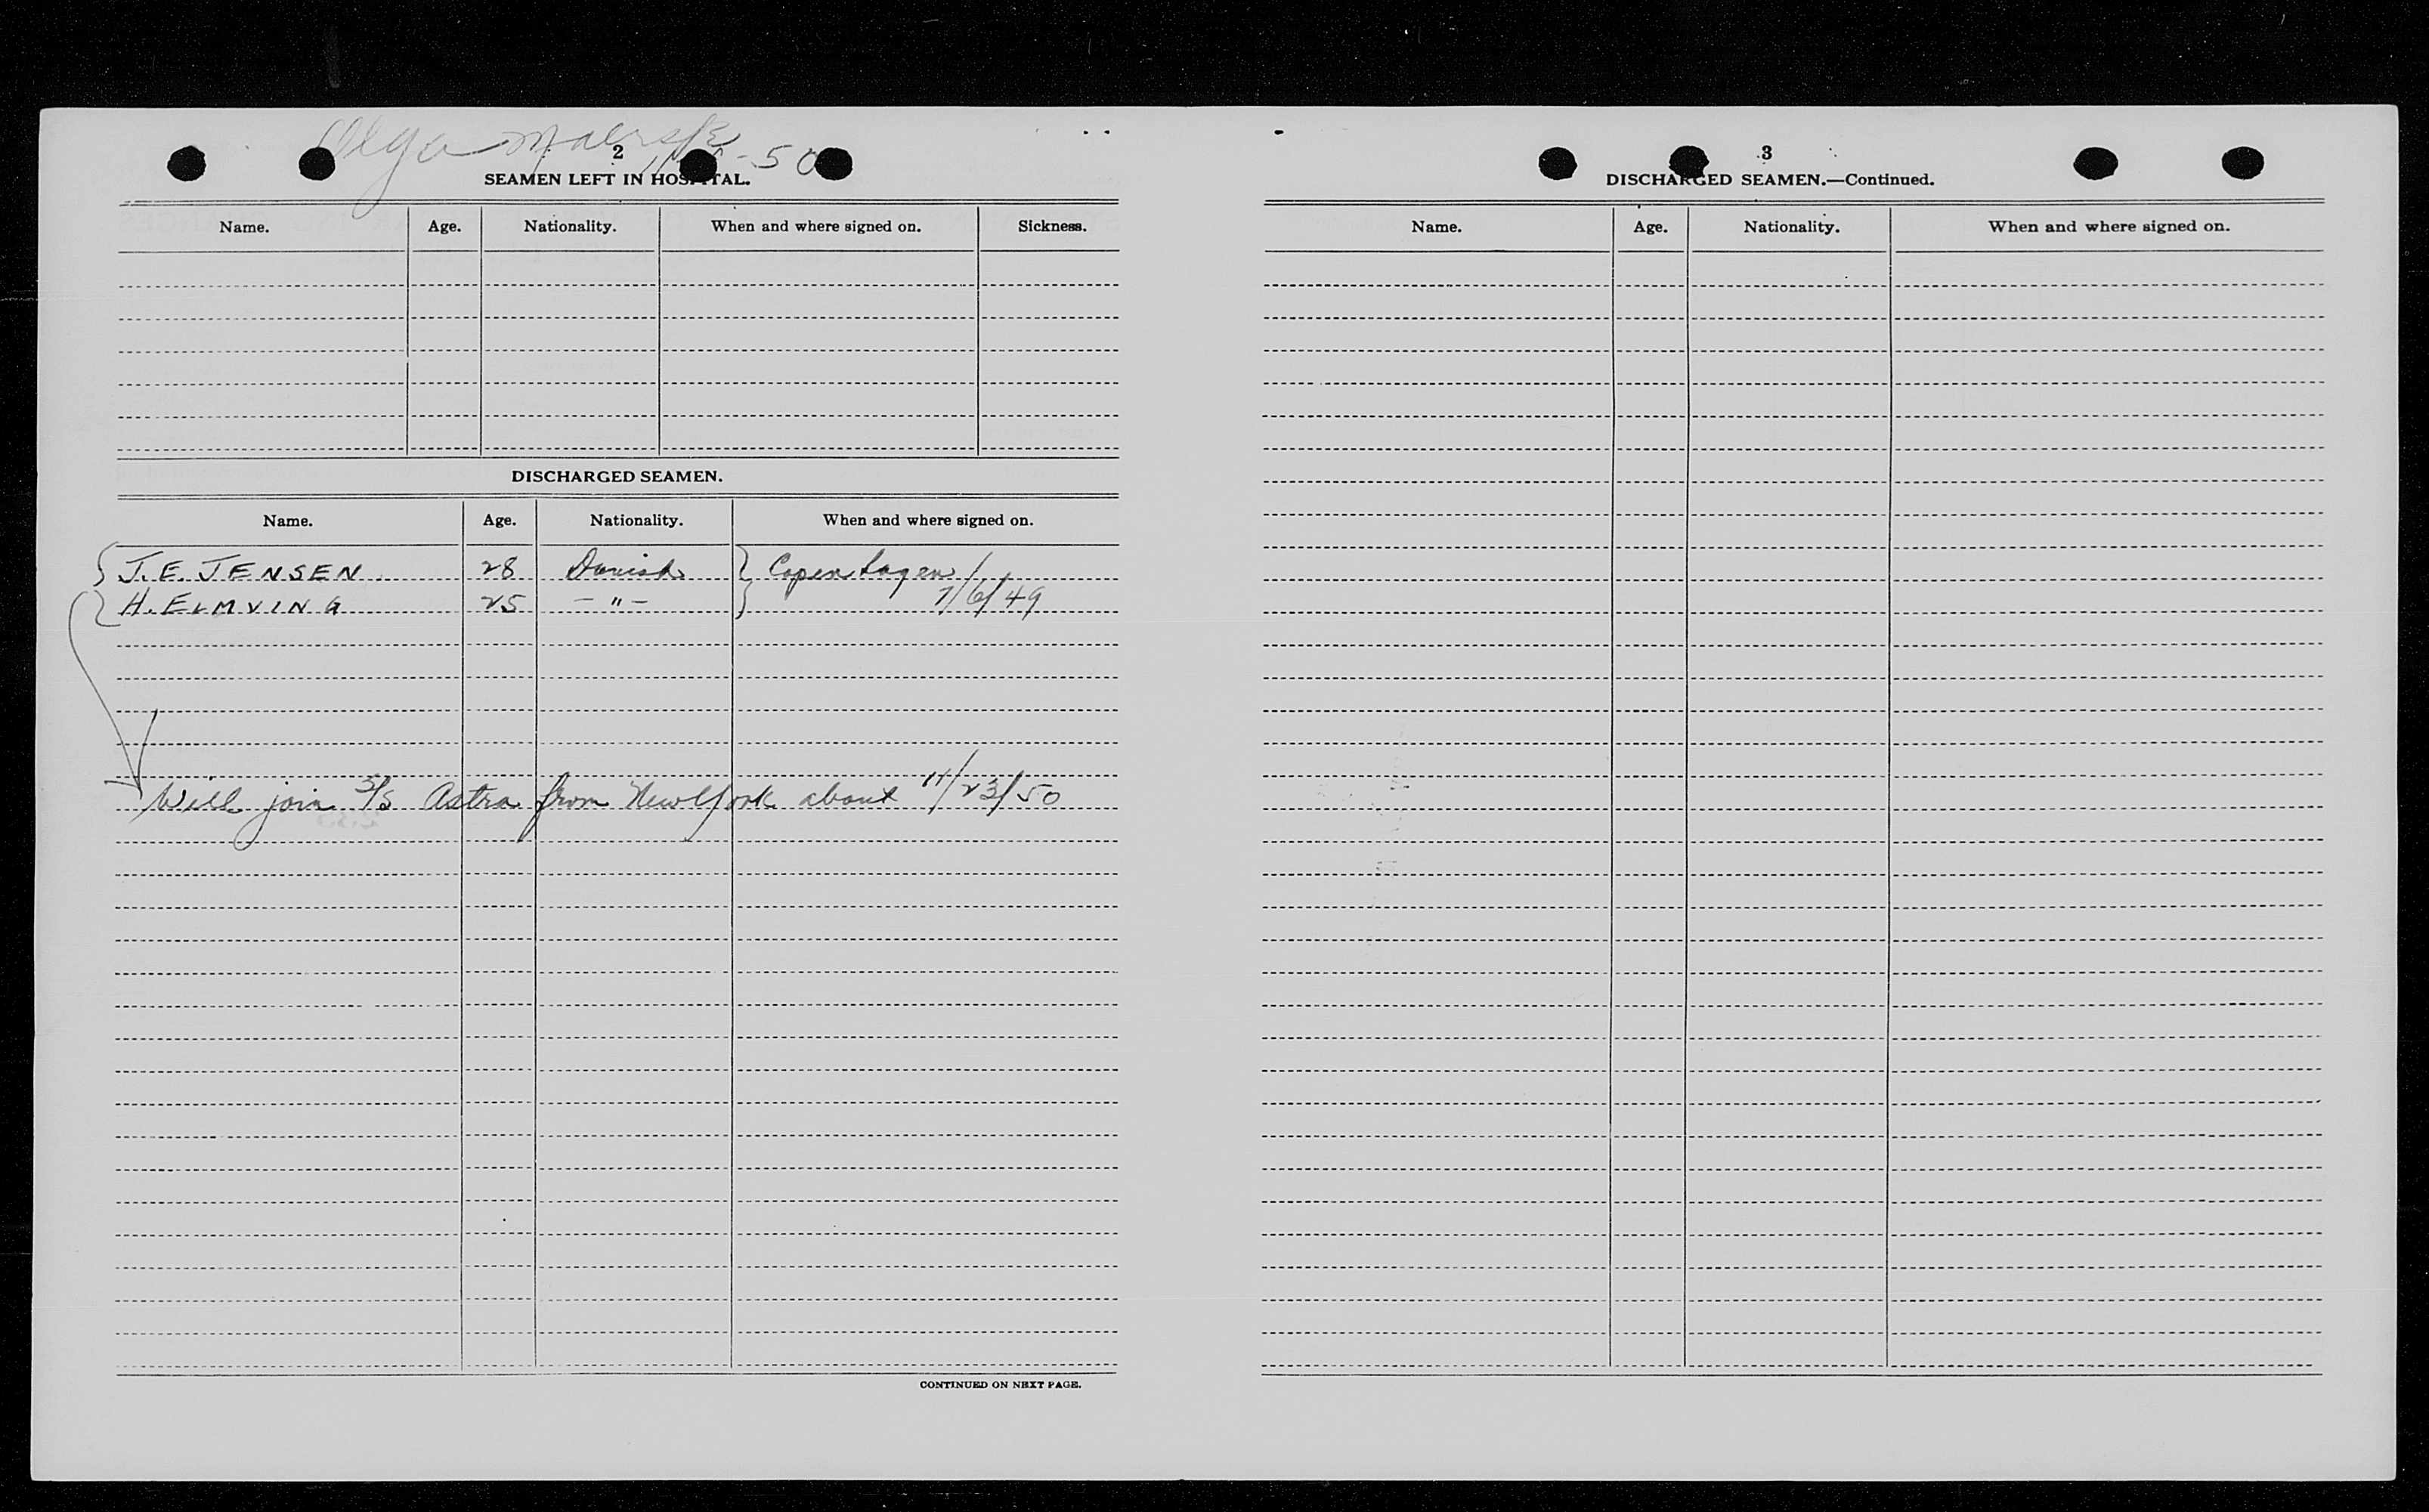 Olga Maersk
2
-50
SEAMEN LEFT IN HOSPITAL.
Name. Age. Nationality. When and where signed on. Sickness.
DISCHARGED SEAMEN.
Name. Age. Nationality. When and where signed on.
J. E. JENSEN 28 Danish Copenhagen
H. ELMVING 25 - " - 7/6/49
Will join S/S Astra from New York about 11/23/50
CONTINUED ON NEXT PAGE.
3
DISCHARGED SEAMEN.—Continued.
Name. Age. Nationality. When and where signed on.